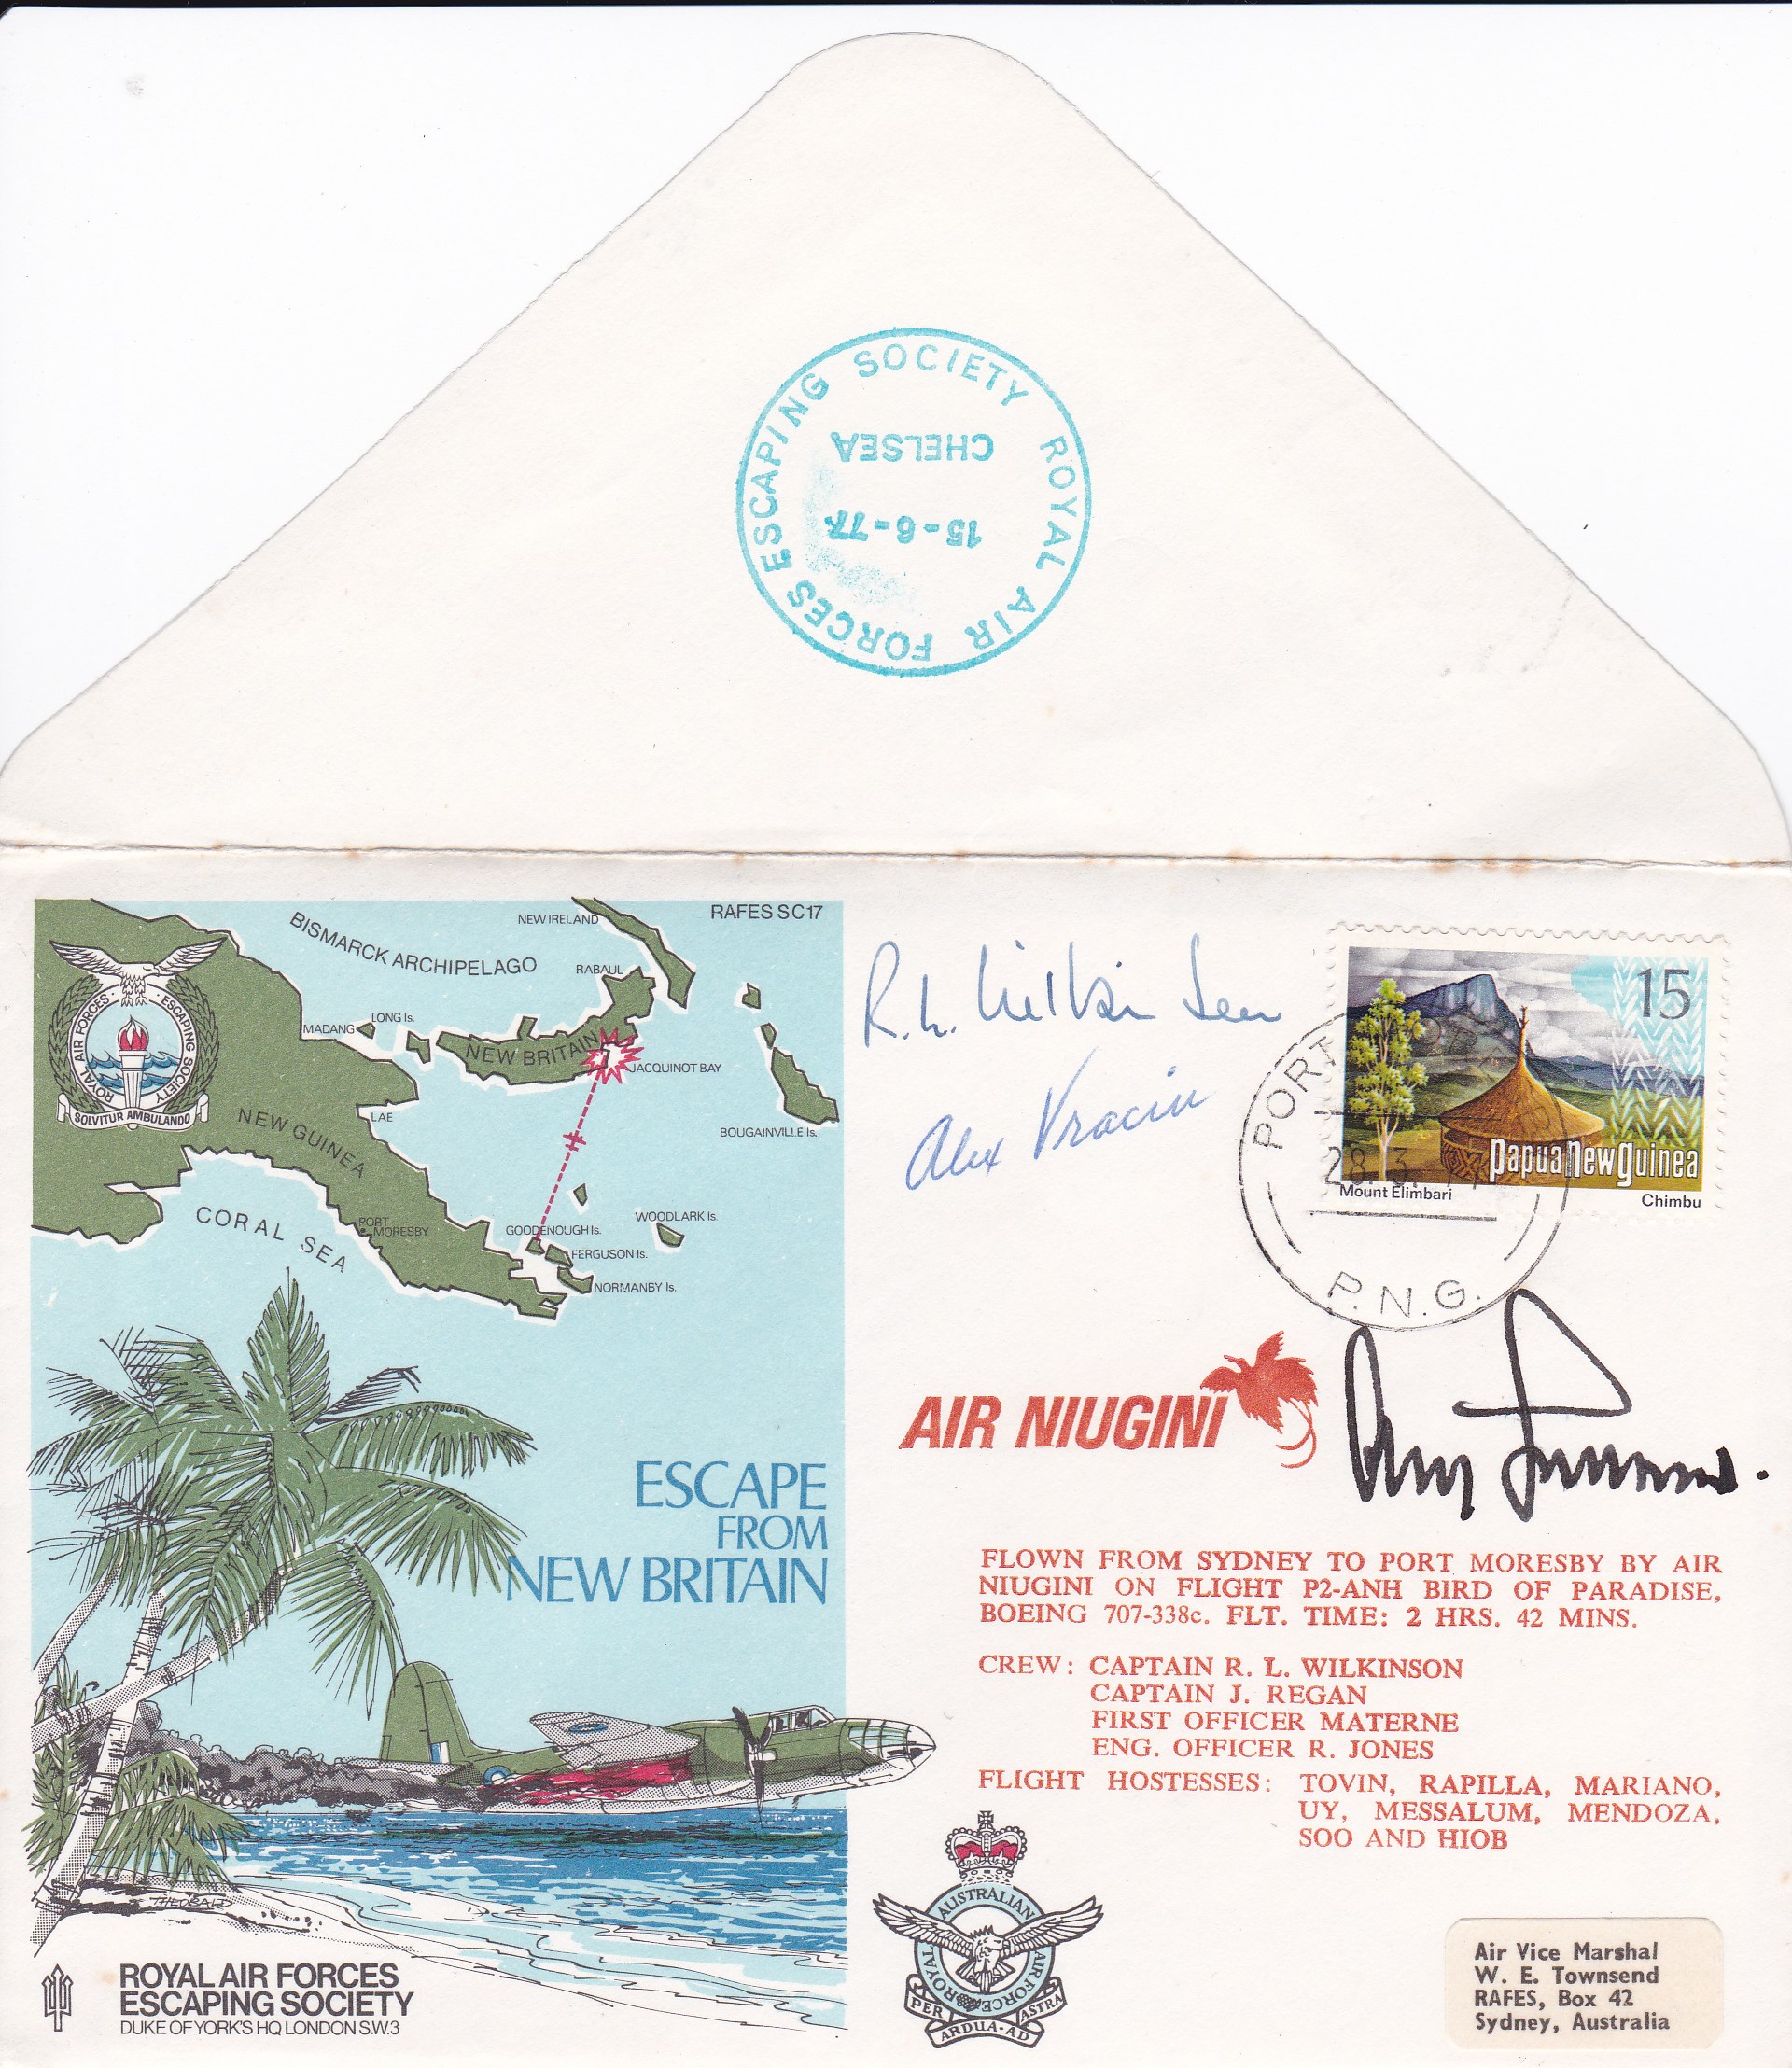 ROYAL AIR FORCES ESCAPING SOCIETY
CHELSEA
15-6-77
RAFES SC17
BISMARCK ARCHIPELAGO
NEW IRELAND
RABAUL
MADANG
LONG Is.
NEW BRITAIN
JACQUINOT BAY
BOUGAINVILLE Is.
ROYAL AIR FORCES · ESCAPING SOCIETY
SOLVITUR AMBULANDO
NEW GUINEA
LAE
CORAL SEA
PORT MORESBY
GOODENOUGH Is.
WOODLARK Is.
FERGUSON Is.
NORMANBY Is.
ESCAPE
FROM
NEW BRITAIN
THEOBALD
ROYAL AIR FORCES
ESCAPING SOCIETY
DUKE OF YORK'S HQ LONDON S.W.3
R. L. Wilkinson
Alex Vraciu
15
Papua New Guinea
Mount Elimbari
Chimbu
PORT
28. 3.
P.N.G.
AIR NIUGINI
FLOWN FROM SYDNEY TO PORT MORESBY BY AIR
NIUGINI ON FLIGHT P2-ANH BIRD OF PARADISE,
BOEING 707-338c. FLT. TIME: 2 HRS. 42 MINS.
CREW: CAPTAIN R. L. WILKINSON
CAPTAIN J. REGAN
FIRST OFFICER MATERNE
ENG. OFFICER R. JONES
FLIGHT HOSTESSES: TOVIN, RAPILLA, MARIANO,
UY, MESSALUM, MENDOZA,
SOO AND HIOB
ROYAL AUSTRALIAN AIR FORCE
PER ARDUA·AD ASTRA
Air Vice Marshal
W. E. Townsend
RAFES, Box 42
Sydney, Australia